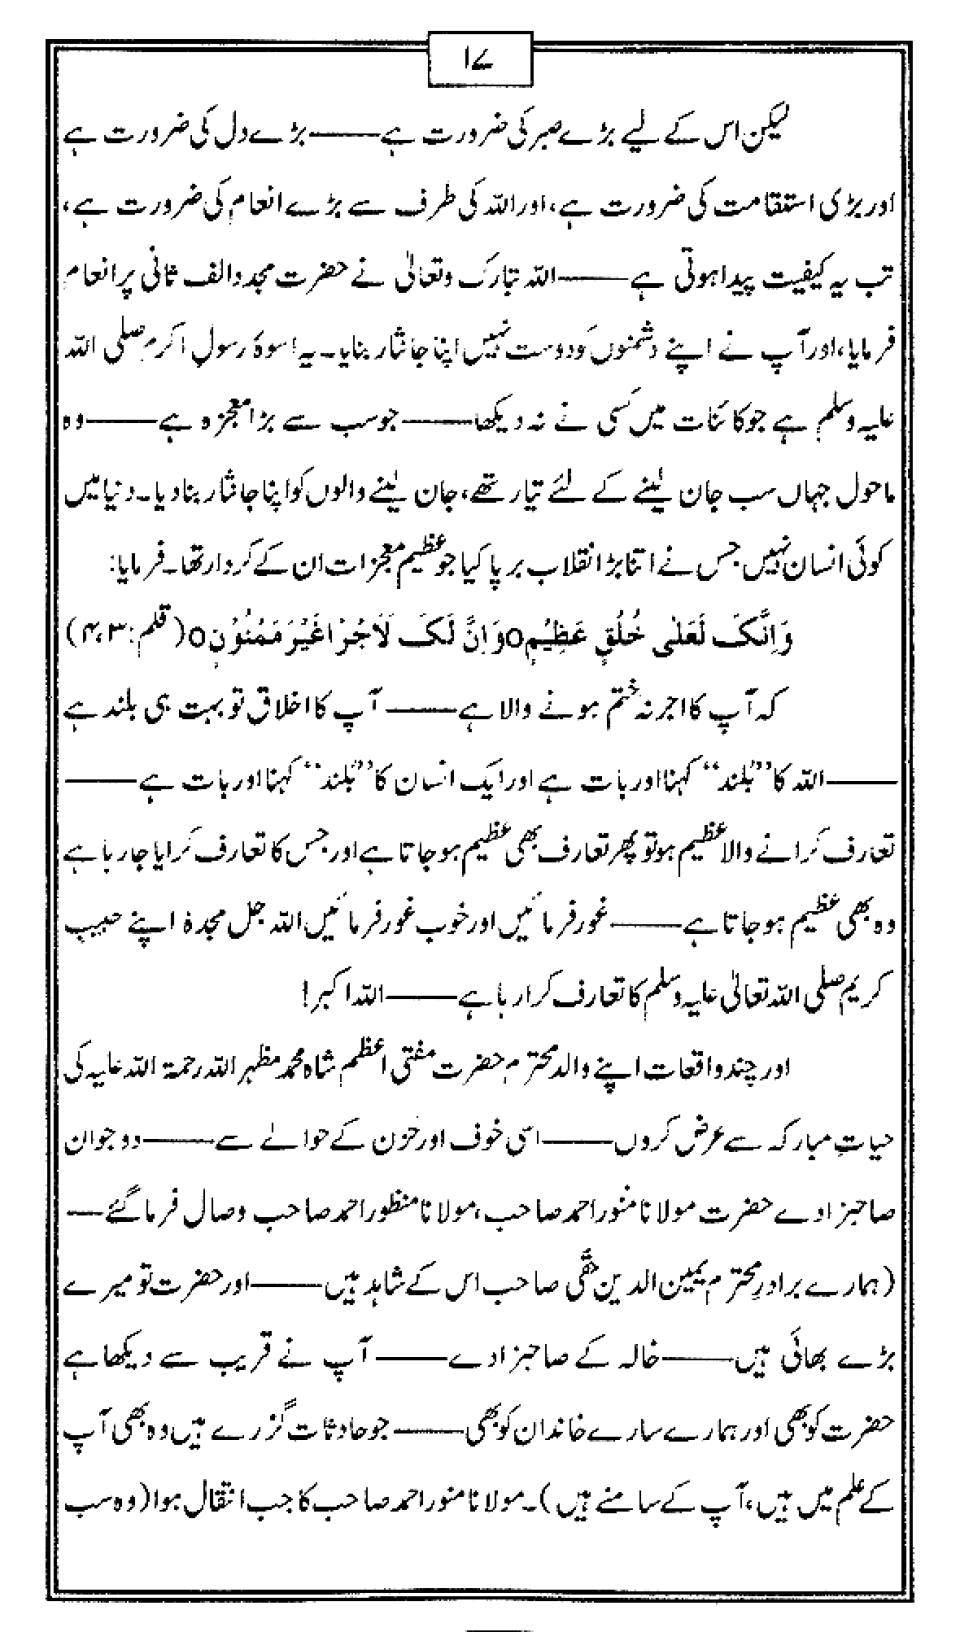 ۱۷
لیکن اس کے لیے بڑے صبر کی ضرورت ہے——بڑے دل کی ضرورت ہے
اور بڑی استقامت کی ضرورت ہے، اور اللہ کی طرف سے بڑے انعام کی ضرورت ہے،
تب یہ کیفیت پیدا ہوتی ہے——اللہ تبارک وتعالٰی نے حضرت مجدد الف ثانی پر انعام
فرمایا، اور آپ نے اپنے دشمنوں کو دوست نہیں اپنا جانثار بنایا۔ یہ اسوۂ رسولِ اکرم صلی اللہ
علیہ وسلم ہے جو کائنات میں کسی نے نہ دیکھا——جو سب سے بڑا معجزہ ہے——وہ
ماحول جہاں سب جان لینے کے لئے تیار تھے، جان لینے والوں کو اپنا جانثار بنا دیا۔ دنیا میں
کوئی انسان نہیں جس نے اتنا بڑا انقلاب برپا کیا جو عظیم معجزات ان کے کردار تھا۔ فرمایا:
وَاِنَّکَ لَعَلٰی خُلُقٍ عَظِیْمٍ0وَاِنَّ لَکَ لَاَجْرًا غَیْرَ مَمْنُوْنٍ0(قلم:۳،۴)
کہ آپ کا اجر نہ ختم ہونے والا ہے——آپ کا اخلاق تو بہت ہی بلند ہے
——اللہ کا ’’بُلند‘‘ کہنا اور بات ہے اور ایک انسان کا ’’بُلند‘‘ کہنا اور بات ہے——
تعارف کرانے والا عظیم ہو تو پھر تعارف بھی عظیم ہو جاتا ہے اور جس کا تعارف کرایا جا رہا ہے
وہ بھی عظیم ہو جاتا ہے——غور فرمائیں اور خوب غور فرمائیں اللہ جل مجدہٗ اپنے حبیب
کریم صلی اللہ تعالٰی علیہ وسلم کا تعارف کرا رہا ہے——اللہ اکبر!
اور چند واقعات اپنے والد محترم حضرت مفتی اعظم شاہ محمد مظہر اللہ رحمۃ اللہ علیہ کی
حیاتِ مبارکہ سے عرض کروں——اسی خوف اور حزن کے حوالے سے——دو جوان
صاحبزادے حضرت مولانا منور احمد صاحب، مولانا منظور احمد صاحب وصال فرما گئے—
(ہمارے برادرِ محترم یمین الدین حقی صاحب اس کے شاہد ہیں——اور حضرت تو میرے
بڑے بھائی ہیں——خالہ کے صاحبزادے——آپ نے قریب سے دیکھا ہے
حضرت کو بھی اور ہمارے سارے خاندان کو بھی——جو حادثات گزرے ہیں وہ بھی آپ
کے علم میں ہیں، آپ کے سامنے ہیں)۔ مولانا منور احمد صاحب کا جب انتقال ہوا (وہ سب